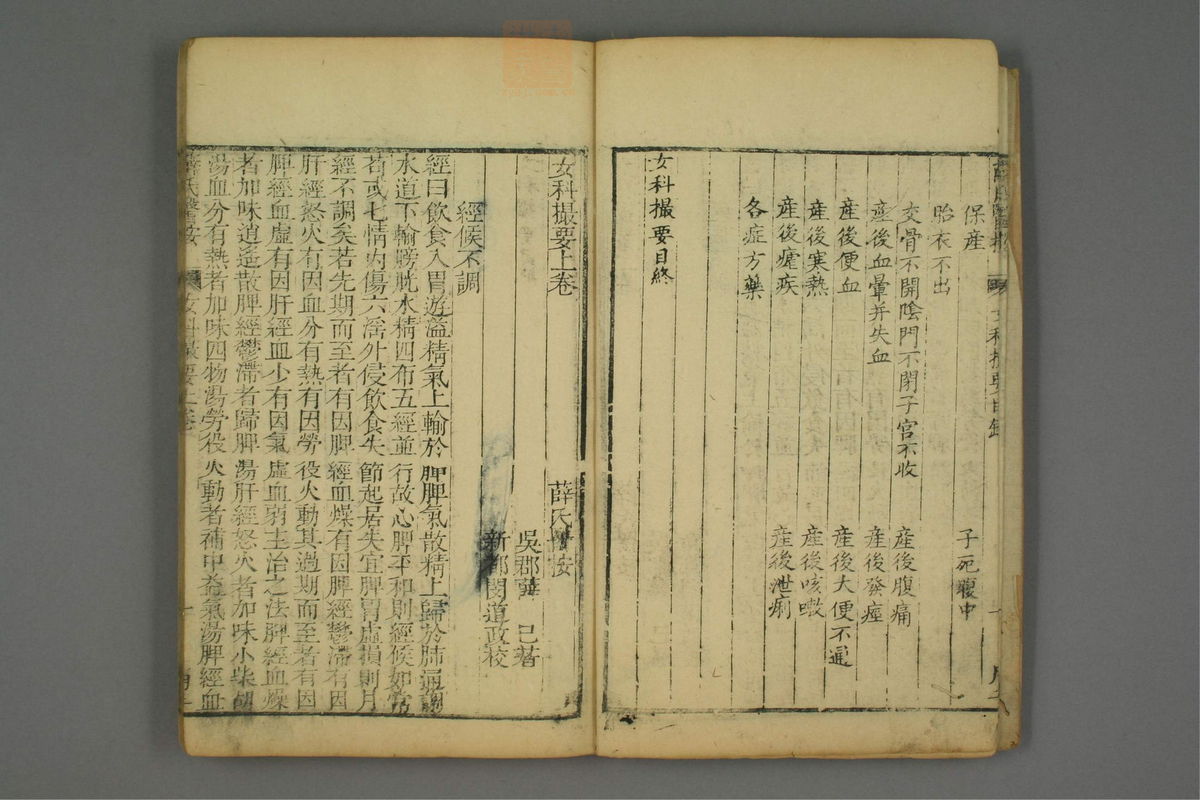 保產 子死腹中
胎衣不出
交骨不開陰門不閉子宮不收
產後腹痛
產後血暈并失血
產後發痙
產後便血
產後大便不通
產後寒熱
產後咳嗽
產後瘧疾
產後泄痢
各症方藥
女科撮要目終
女科撮要上卷 薛氏醫按
吳郡薛 己著
新都閔道政校
經候不調
經曰飲食入胃遊溢精氣上輸於脾脾氣散精上歸於肺通調
水道下輸膀胱水精四布五經並行故心脾平和則經候如常
苟或七情內傷六淫外侵飲食失節起居失宜脾胃虛損則月
經不調矣若先期而至者有因脾經血燥有因脾經鬱滯有因
肝經怒火有因血分有熱有因勞役火動其過期而至者有因
脾經血虛有因肝經血少有因氣虛血弱主治之法脾經血燥
者加味逍遙散脾經鬱滯者歸脾湯肝經怒火者加味小柴胡
湯血分有熱者加味四物湯勞役火動者補中益氣湯脾經血
薛氏醫按 女科撮要上卷